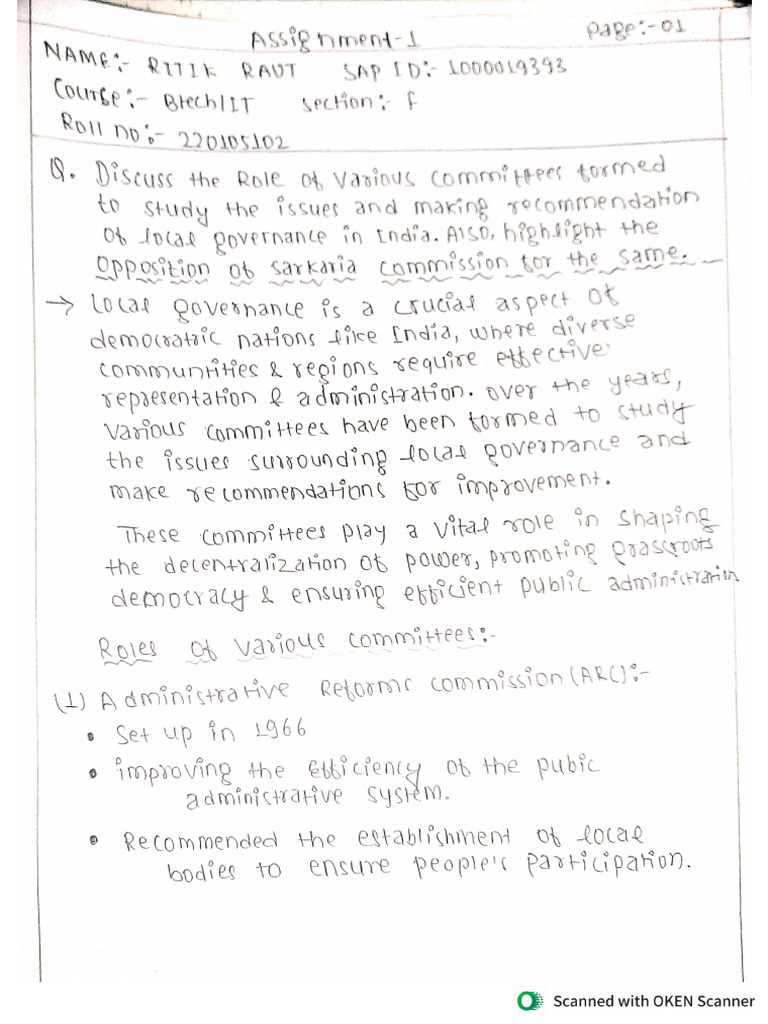 Assignment-1
Page:-01
NAME:- RITIK RAUT SAP ID:- 1000019393
Course:- Btech/IT section:- f
Roll no:- 220105102
Q. Discuss the Role of various committees formed
to study the issues and making recommendation
of local governance in India. Also, highlight the
opposition of sarkaria commission for the same.
→ Local governance is a crucial aspect of
democratric nations like India, where diverse
communities & regions require effective
representation & administration. over the years,
various committees have been formed to study
the issues surrounding local governance and
make recommendations for improvement.
These committees play a vital role in shaping
the decentralization of power, promoting grassroots
democracy & ensuring efficient public administration
Roles of various committees:-
(1) Administrative Reforms commission (ARC):-
• Set up in 1966
• improving the efficiency of the pubic
administrative system.
• Recommended the establishment of local
bodies to ensure people's participation.
Scanned with OKEN Scanner